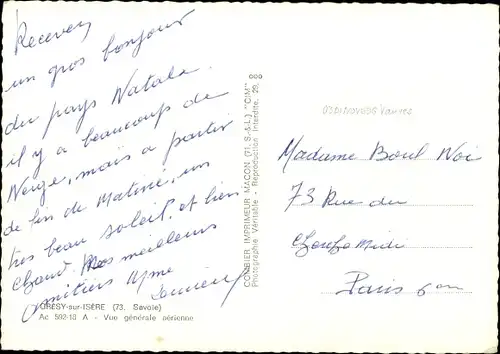 Recevez
un gros bonjour
du pays Natale.
il y a beaucoup de
Neige, mais a partir
de fin de Matiné, un
tres beau soleil. et bien
chaud Mes meilleurs
amitiers Mme
COMBIER IMPRIMEUR MACON (71. S.-&-L.) "CIM"
Photographie Véritable - Reproduction Interdite.
Madame Boul Noi
73 Rue du
Paris 6em
GRESY-sur-ISÈRE (73. Savoie)
Ac 592-18 A - Vue générale aérienne